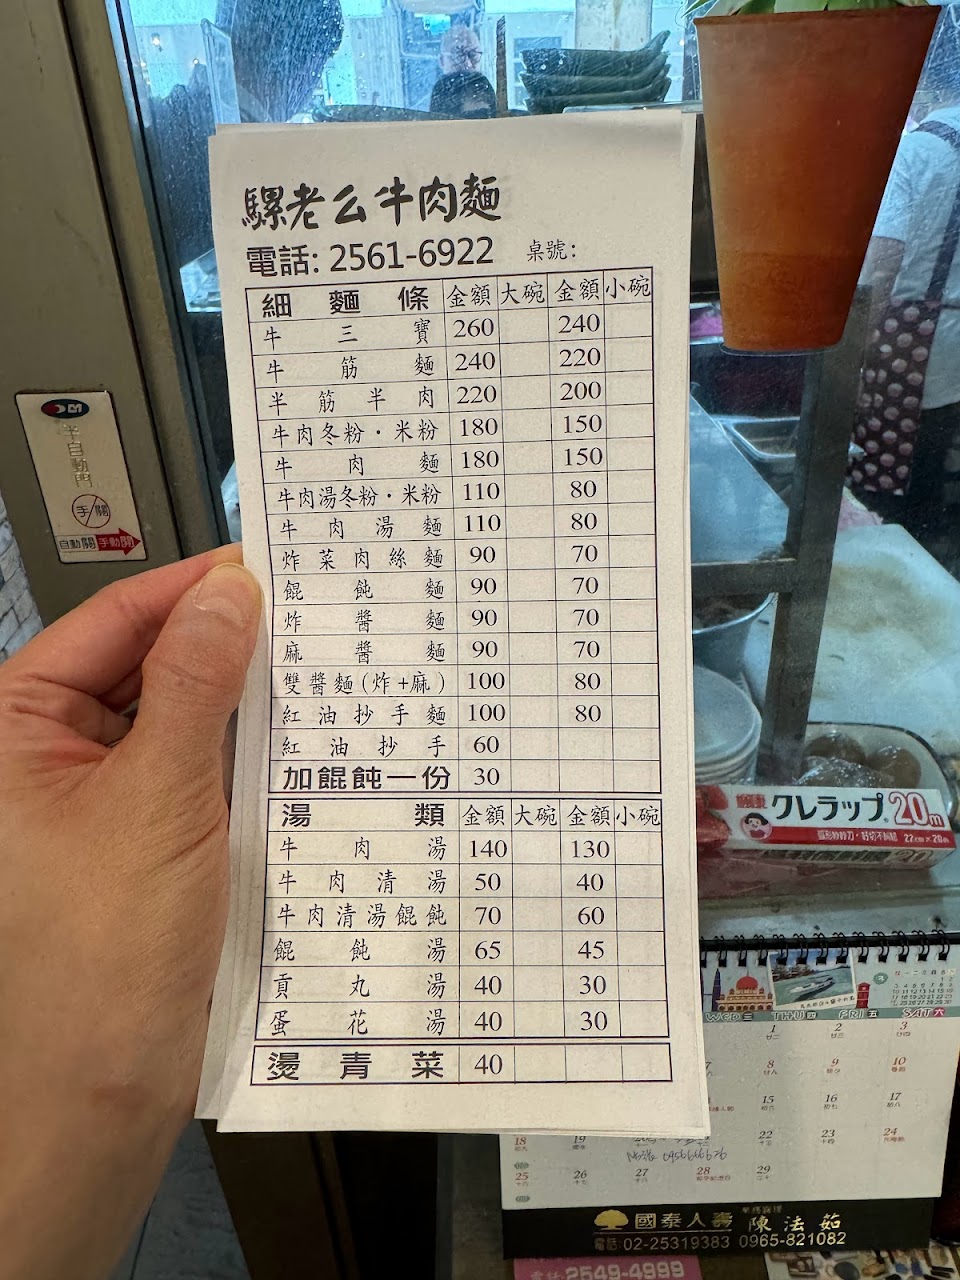 騾老么牛肉麵
電話: 2561-6922 桌號:
細麵條 金額 大碗 金額 小碗
牛三寶 260 240
牛筋麵 240 220
半筋半肉 220 200
牛肉冬粉·米粉 180 150
牛肉麵 180 150
牛肉湯冬粉·米粉 110 80
牛肉湯麵 110 80
炸菜肉絲麵 90 70
餛飩麵 90 70
炸醬麵 90 70
麻醬麵 90 70
雙醬麵(炸+麻) 100 80
紅油抄手麵 100 80
紅油抄手 60
加餛飩一份 30
湯類 金額 大碗 金額 小碗
牛肉湯 140 130
牛肉清湯 50 40
牛肉清湯餛飩 70 60
餛飩湯 65 45
貢丸湯 40 30
蛋花湯 40 30
燙青菜 40
半自動門
手/關
自動關 手動開
クレラップ 20m
22cm×20m
WED三 THU四 FRI五 SAT六
1 2 3
7 8 9 10
15 16 17
22 23 24
18 19
25 26 27 28 29
國泰人壽 陳法茹
電話:02-25319383 0965-821082
電話:2549-4999